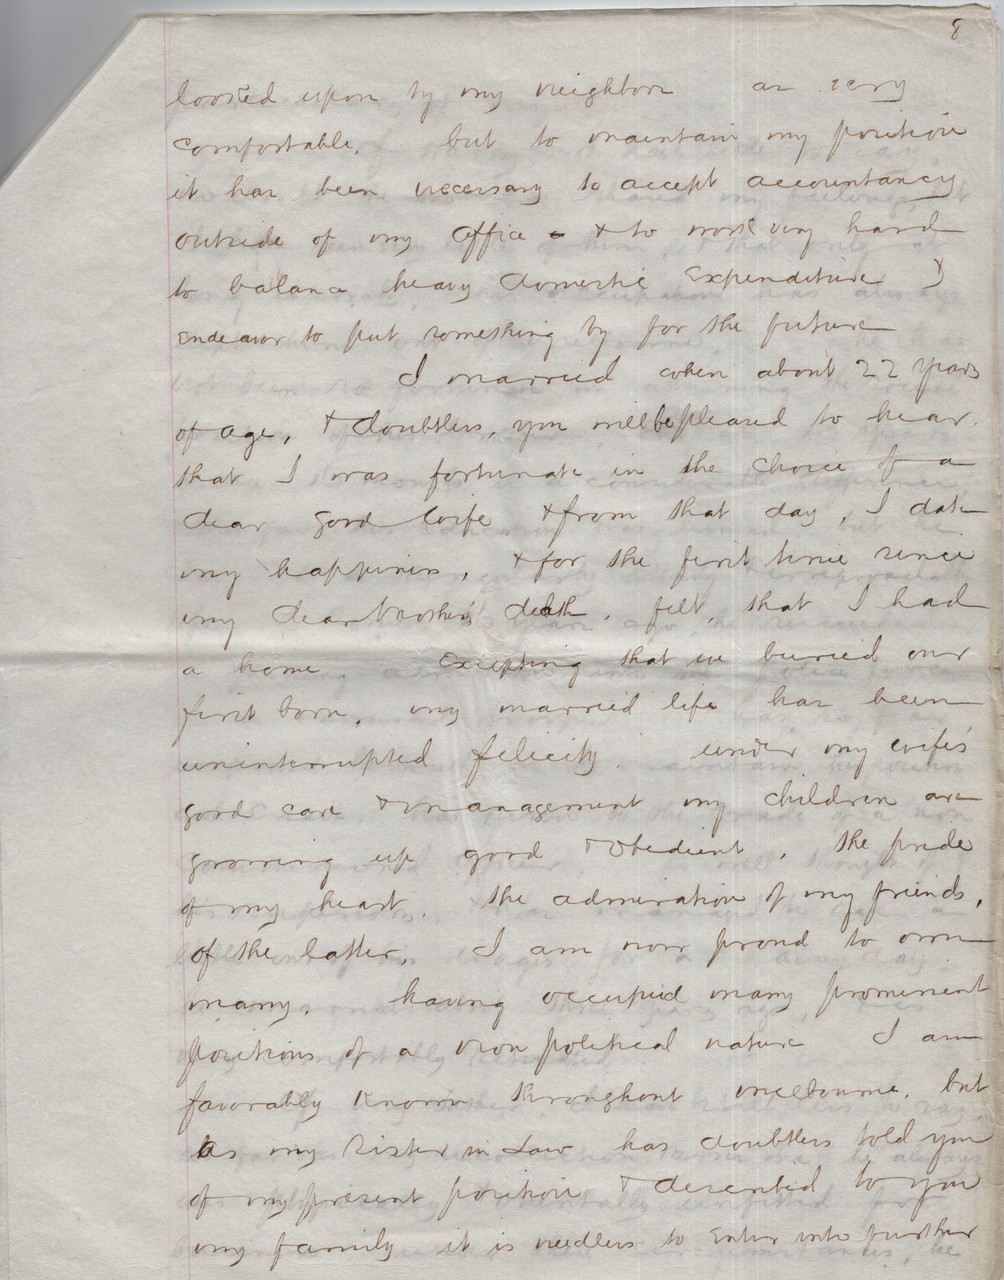 8
looked upon by my neighbors as very
comfortable, but to maintain my position
it has been necessary to accept accountancy
outside of my office & to work very hard
to balance heavy domestic Expenditure &
Endeavor to put something by for the future
I married when about 22 years
of age, & doubtless, you will be pleased to hear,
that I was fortunate in the choice of a
dear good wife & from that day, I date
my happiness, & for the first time since
my dear Mother's death, felt, that I had
a home Excepting that we buried our
first born, my married life has been
uninterrupted felicity. under my wife's
good care & management my children are
growing up good & Obedient, the pride
of my heart, the admiration of my friends,
of the latter, I am now proud to own
many, having occupied many prominent
positions of a non political nature I am
favorably Known throughout melbourne, but
as my Sister in Law has doubtless told you
of my present position & described to you
my family it is needless to Enter into further